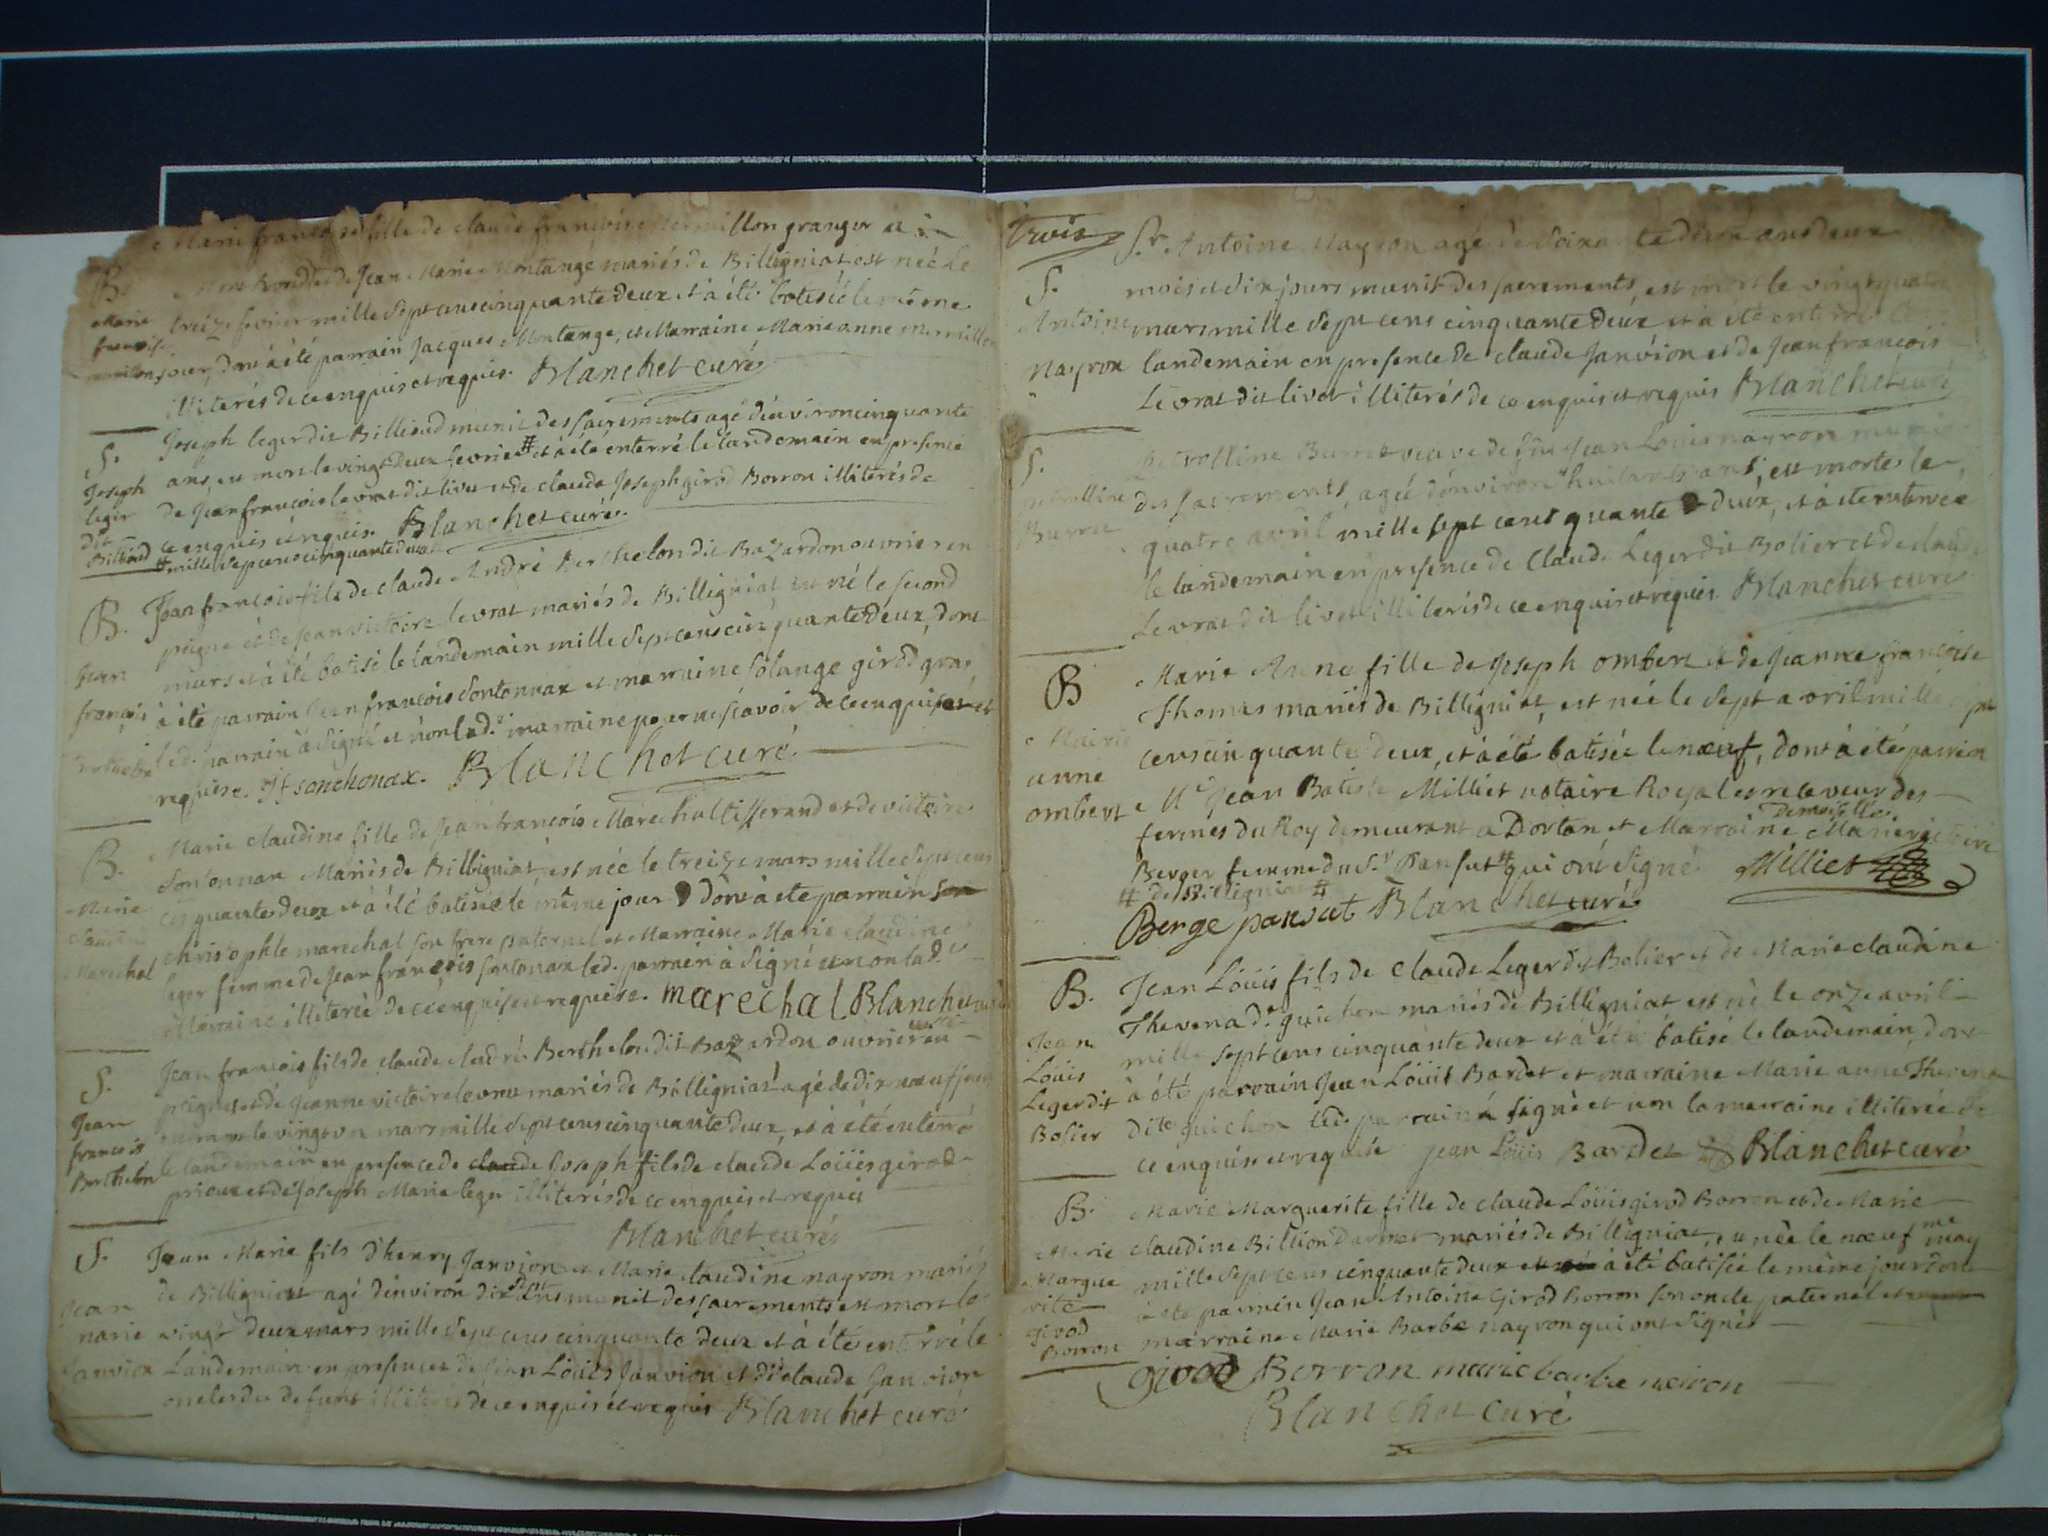 Marie françoise fille de claude françois Mermillon granger a
B. Mont Rond et de Jean Marie Montange mariés de Billigniat est née le
Marie treize fevrier mille sept cens cinquante deux et a été batisée le même
françoise jour, dont a été parrain Jacques Montange, et Marraine Marie anne mermillon
illiterés de ce enquis et requis. Blanchet curé
Joseph leger dit Billioud munit des sacrements agé d'environ cinquante
S. ans, est mort le vingt deux fevrier # et a été enterré le landemain en presence
Joseph de Jean françois levrat dit livet et de claude Joseph girod Borron illiterés de
leger ce enquis et requis. Blanchet curé.
dit
Billioud # mille sept cens cinquante deux
Jean françois fils de claude André Berthelon dit Bazardon ouvrier en
B. peigne et de Jean victoire levrat mariés de Billigniat est né le second
Jean mars et a été batisé le landemain mille sept cens cinquante deux, dont
françois à été parrain Jean françois sontonnax et marraine solange girod
led. parrain à signé et non lad. marraine pour ne sçavoir de ce enquise et
requise. Jf sonthonax. Blanchet curé
Marie claudine fille de Jean françois Marechal tisserand et de victoire
B. sontonnax Mariés de Billigniat, est née le treize mars mille sept cens
Marie cinquante deux et à été batisée le même jour dont à été parrain
claudine christophle marechal son frere paternel et Marraine Marie claudine
Marechal leger femme de Jean françois sontonax led. parrain à signé et non lad.
Marraine illiterée de ce enquise et requise. marechal Blanchet curé
Jean françois fils de claude André Berthelon dit Bazardon ouvrier en
S. peignes et de Jeanne victoire levrat mariés de Billigniat agé de dix nœuf jours
Jean est mort le vingt un mars mille sept cens cinquante deux, et à été enterré
françois le landemain en presence de Joseph fils de claude Loüis girod
Berthelon prieur et de Joseph Marie leger illiterés de ce enquis et requis
Blanchet curé
S. Jean Marie fils d'henry Janvion et Marie claudine nayron mariés
de Billigniat agé d'environ dix sept ans munit des sacrements est mort le
Jean vingt deux mars mille sept cens cinquante deux et à été enterré le
marie Landemain en presence de Jean Loüis Janvion et de claude Janvion
Janvion oncles du defunt illiterés de ce enquis et requis Blanchet curé
Trois
Sr. Antoine Nayron agé de soixante deux ans deux
S. mois et dix jours munit des sacrements, est mort le vingt quatre
Antoine mars mille sept cens cinquante deux et a été enterré le
Nayron landemain en presence de claude Janvion et de Jean françois
Levrat dit livet illiterés de ce enquis et requis Blanchet curé
S. veuve de Jean Loüis nayron munie
des sacrements, agée d'environ huitante ans, est morte le
quatre avril mille sept cens quante deux, et à été enterrée
le landemain en presence de Claude Leger dit Bolier et de claude
Levrat dit livet illiterés de ce enquis et requis. Blanchet curé
Marie Anne fille de Joseph ombert et de Jeanne françoise
B Thomas mariés de Billigniat, est née le sept avril mille sept
Marie cens cinquante deux, et à été batisée le nœuf, dont à été parrain
anne Me Jean Batiste Milliet notaire Royal et receveur des
ombert fermes du Roy demeurant a Dortan et Marraine Demoiselle Marie victoire
Berger femme du Sr. Pansut # qui ont signé. Milliet
# de Billigniat #
Berge pansut Blanchet curé
Jean Loüis fils de Claude Leger dit Bolier et de Marie claudine
B. Thevena dt. guichon mariés de Billigniat est né le onze avril
Jean mille sept cens cinquante deux et à été batisé le landemain, dont
Loüis à été parrain Jean Loüis Bardet et marraine Marie anne Thevena
Leger dit dite guichon led. parrain à signé et non la marraine illiterée de
Bolier ce enquise et requise jean Loüis Bardet Blanchet curé
B. Marie Marguerite fille de claude Loüis girod Borron et de Marie
Marie claudine Billion mariés de Billigniat, est née le nœuf me may
Margue mille sept cens cinquante deux à été batisée le même jour dont
rite à été parrain Jean Antoine Girod Borron son oncle paternel et
girod marraine Marie Barbe nayron qui ont signés
Borron
girod Borron marie barbe neiron
Blanchet Curé